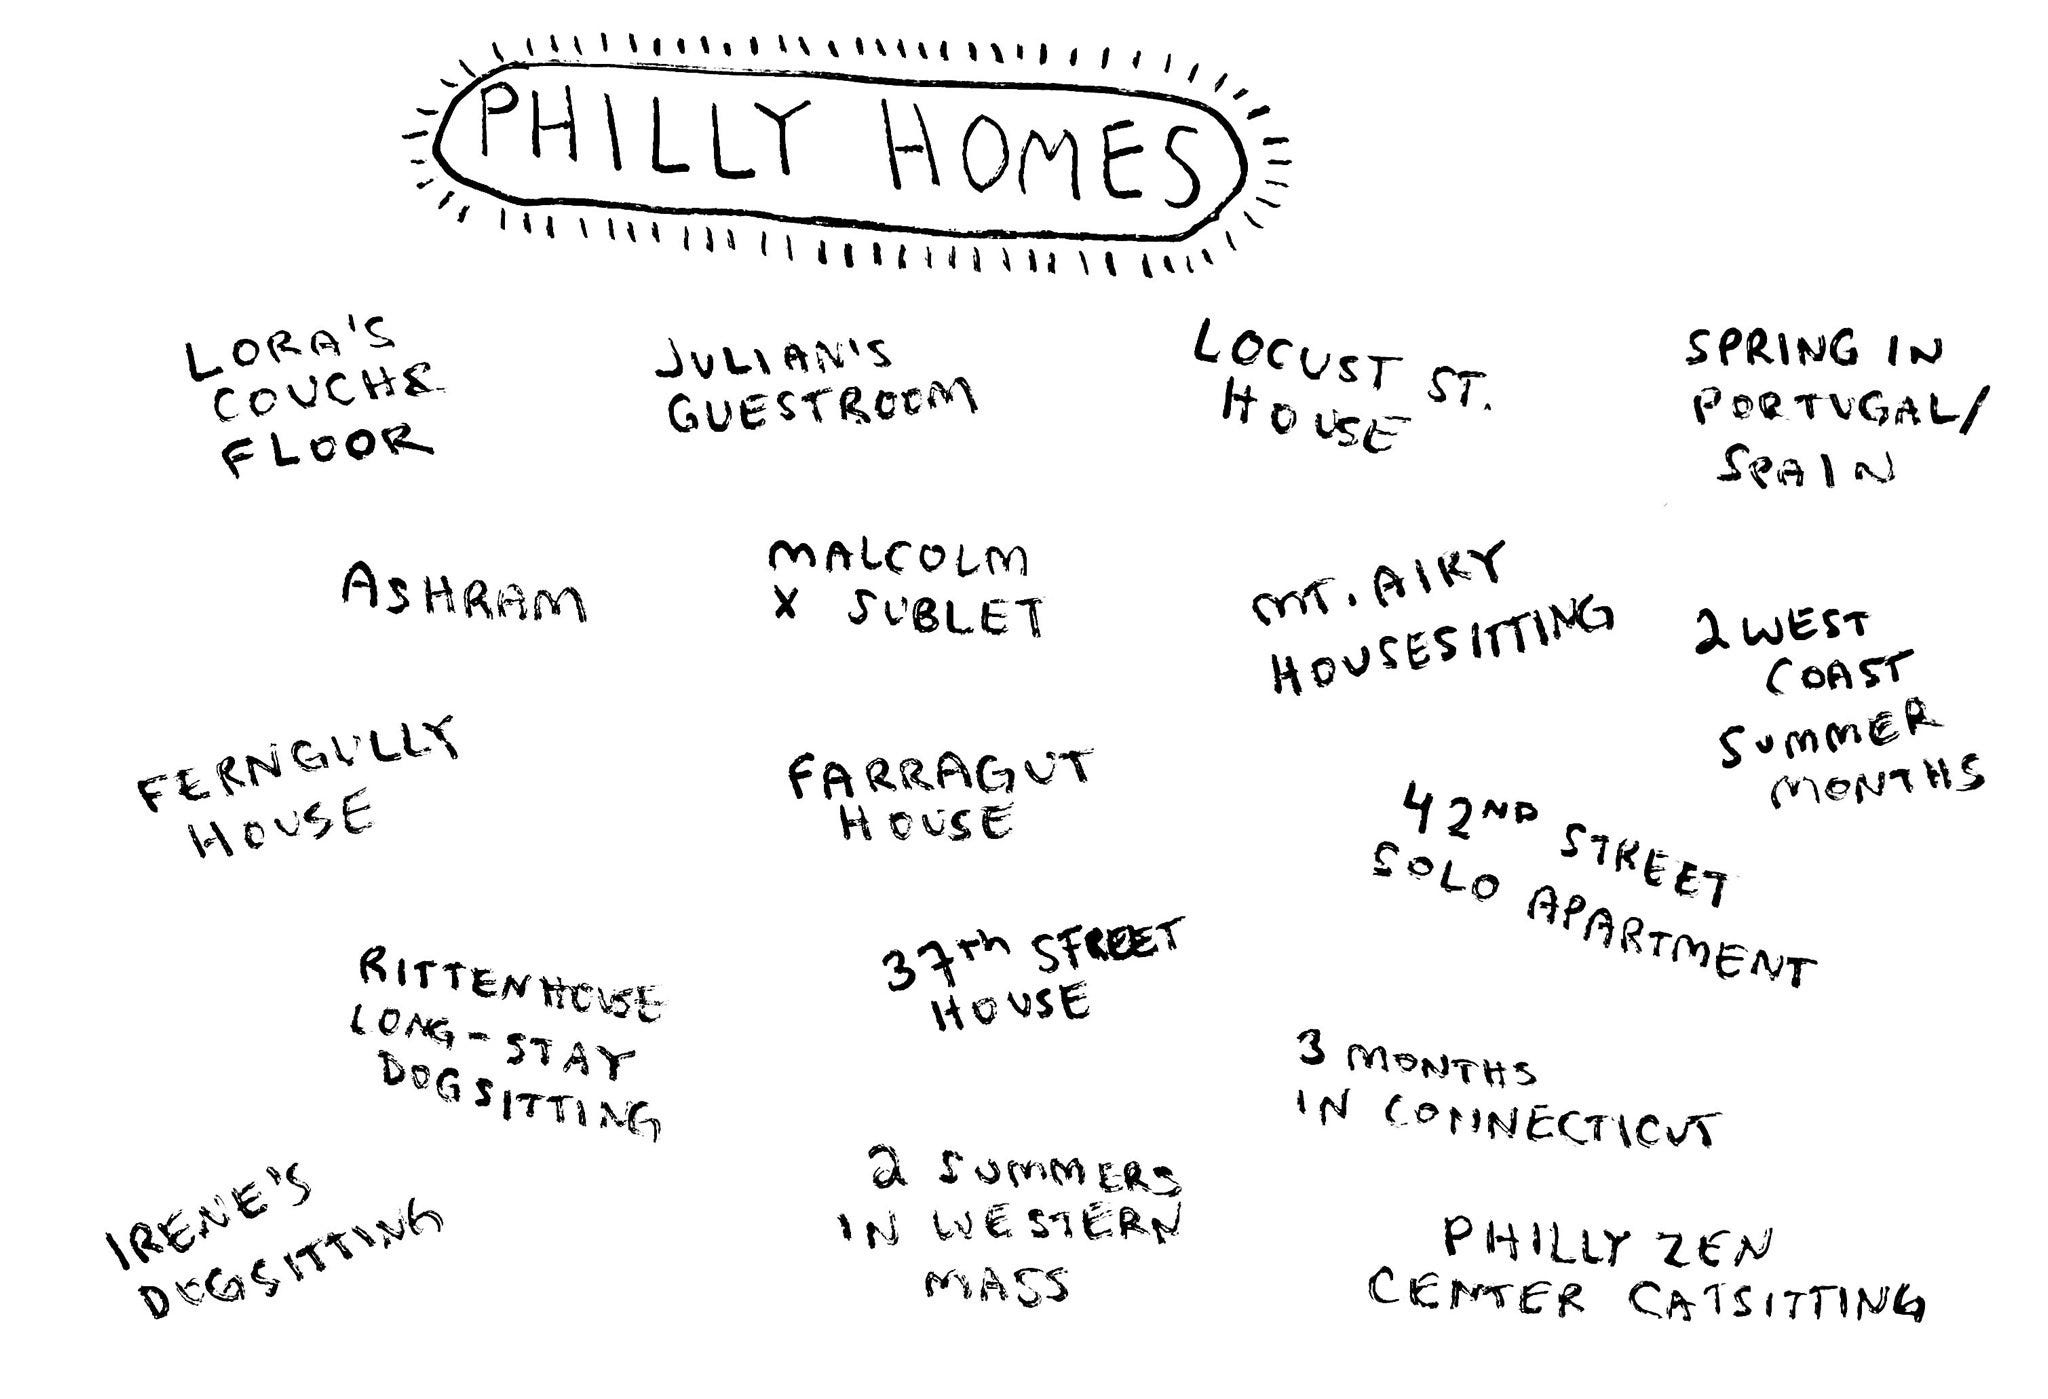 PHILLY HOMES
LORA'S
COUCH &
FLOOR
JULIAN'S
GUESTROOM
LOCUST ST.
HOUSE
SPRING IN
PORTUGAL/
SPAIN
ASHRAM
MALCOLM
X SUBLET
MT. AIRY
HOUSESITTING
2 WEST
COAST
SUMMER
MONTHS
FERNGULLY
HOUSE
FARRAGUT
HOUSE
42ND STREET
SOLO APARTMENT
RITTENHOUSE
LONG-STAY
DOGSITTING
37th STREET
HOUSE
3 MONTHS
IN CONNECTICUT
IRENE'S
DOGSITTING
2 SUMMERS
IN WESTERN
MASS
PHILLY ZEN
CENTER CATSITTING